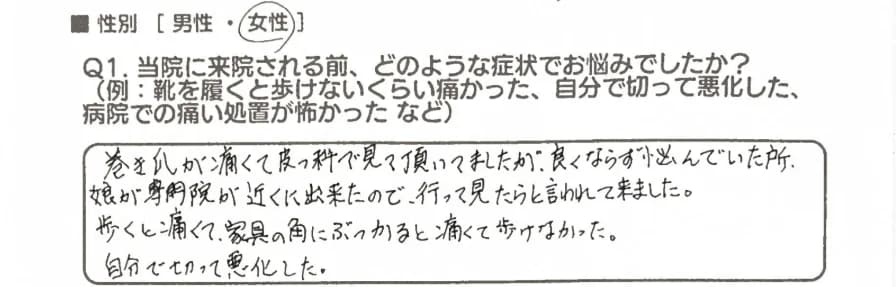 ■ 性別 [ 男性 ・ 女性 ]
Q1. 当院に来院される前、どのような症状でお悩みでしたか?
(例:靴を履くと歩けないくらい痛かった、自分で切って悪化した、
病院での痛い処置が怖かった など)
巻き爪が痛くて皮フ科で見て頂いてましたが、良くならず悩んでいた所、
娘が専門院が近くに出来たので、行って見たらと言われて来ました。
歩くと痛くて、家具の角にぶつかると痛くて歩けなかった。
自分で切って悪化した。